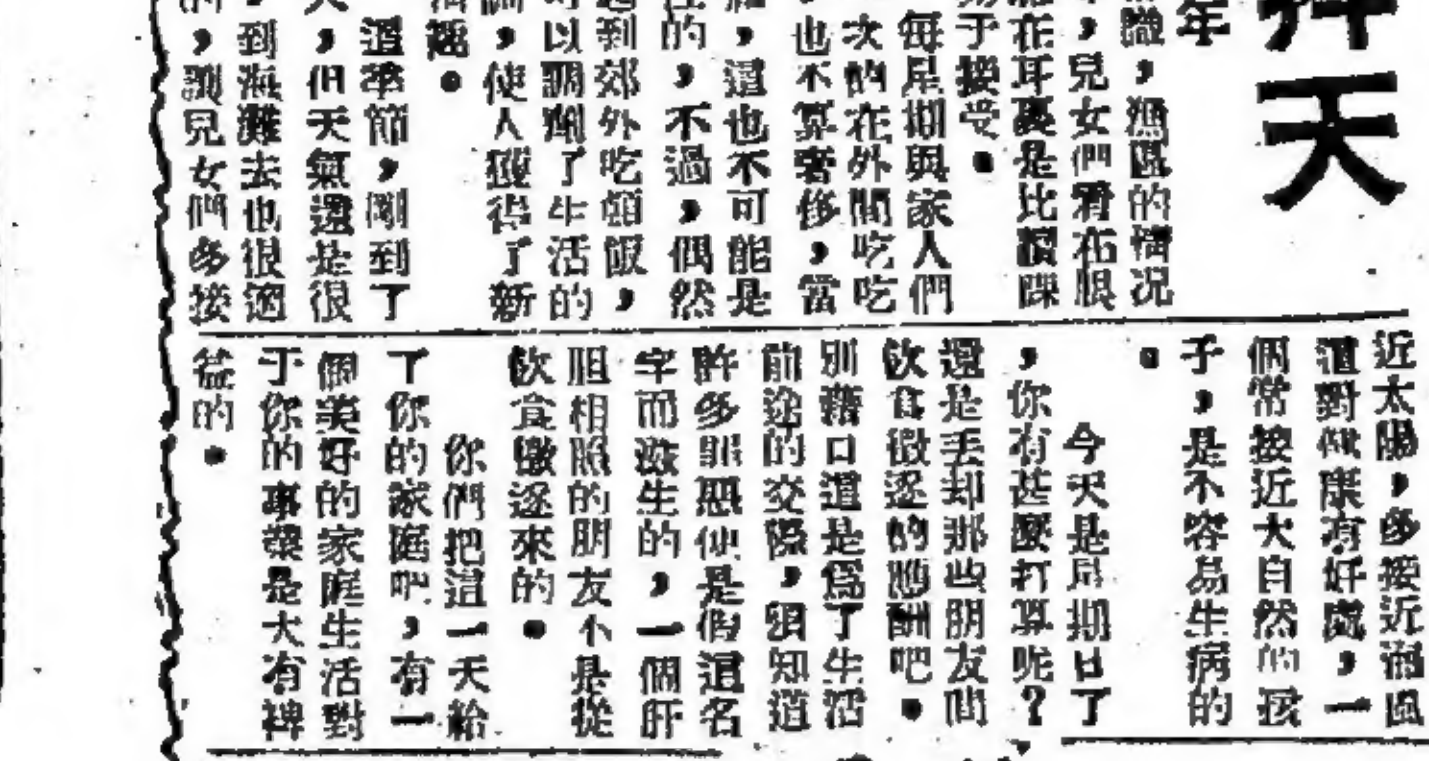 天
年
識,漁區的情况
,兒女們看在眼
在耳裏是比較踝
于接受。
每星期與家人們
次的在外間吃吃
也不算奢侈,當
,這也不可能是
的,不過,偶然
到郊外吃頓飯,
以調劑了生活的
,使人獲得了新
。
這季節,剛到了
,但天氣還是很
,到海灘去也很適
,讓兒女們多接
近太陽,多接近海風
這對健康有好處,一
個常接近大自然的孩
子,是不容易生病的
。
今天是星期日了
,你有甚麽打算呢?
還是丢却那些朋友間
飲食徵逐的應酬吧。
別藉口這是爲了生活
前途的交際,須知道
許多罪惡便是假這名
字而滋生的,一個肝
胆相照的朋友不是從
飲食徵逐來的。
你們把這一天給
了你的家庭吧,有一
個美好的家庭生活對
于你的事業是大有裨
益的。